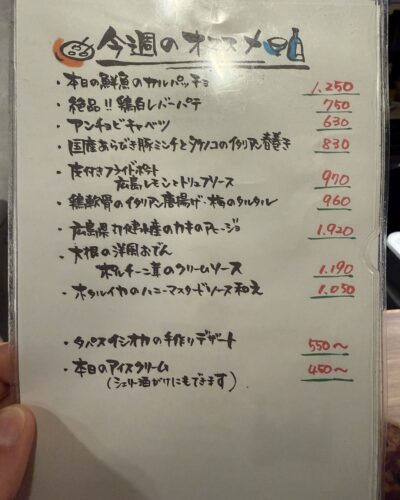 今週のオススメ
・本日の鮮魚のカルパッチョ 1,250
・絶品!! 鶏白レバーパテ 750
・アンチョビキャベツ 630
・国産あらびき豚ミンチとタケノコのイタリアン春巻き 830
・皮付きフライドポテト
広島レモンとトリュフソース 970
・鶏軟骨のイタリアン唐揚げ・梅のタルタル 960
・広島県 産のカキのアヒージョ 1,920
・大根の洋風おでん
ポルチーニ茸のクリームソース 1,190
・ホタルイカのハニーマスタードソース和え 1,050
・タパスイシオカの手作りデザート 550〜
・本日のアイスクリーム 450〜
(シェリー酒がけにもできます)